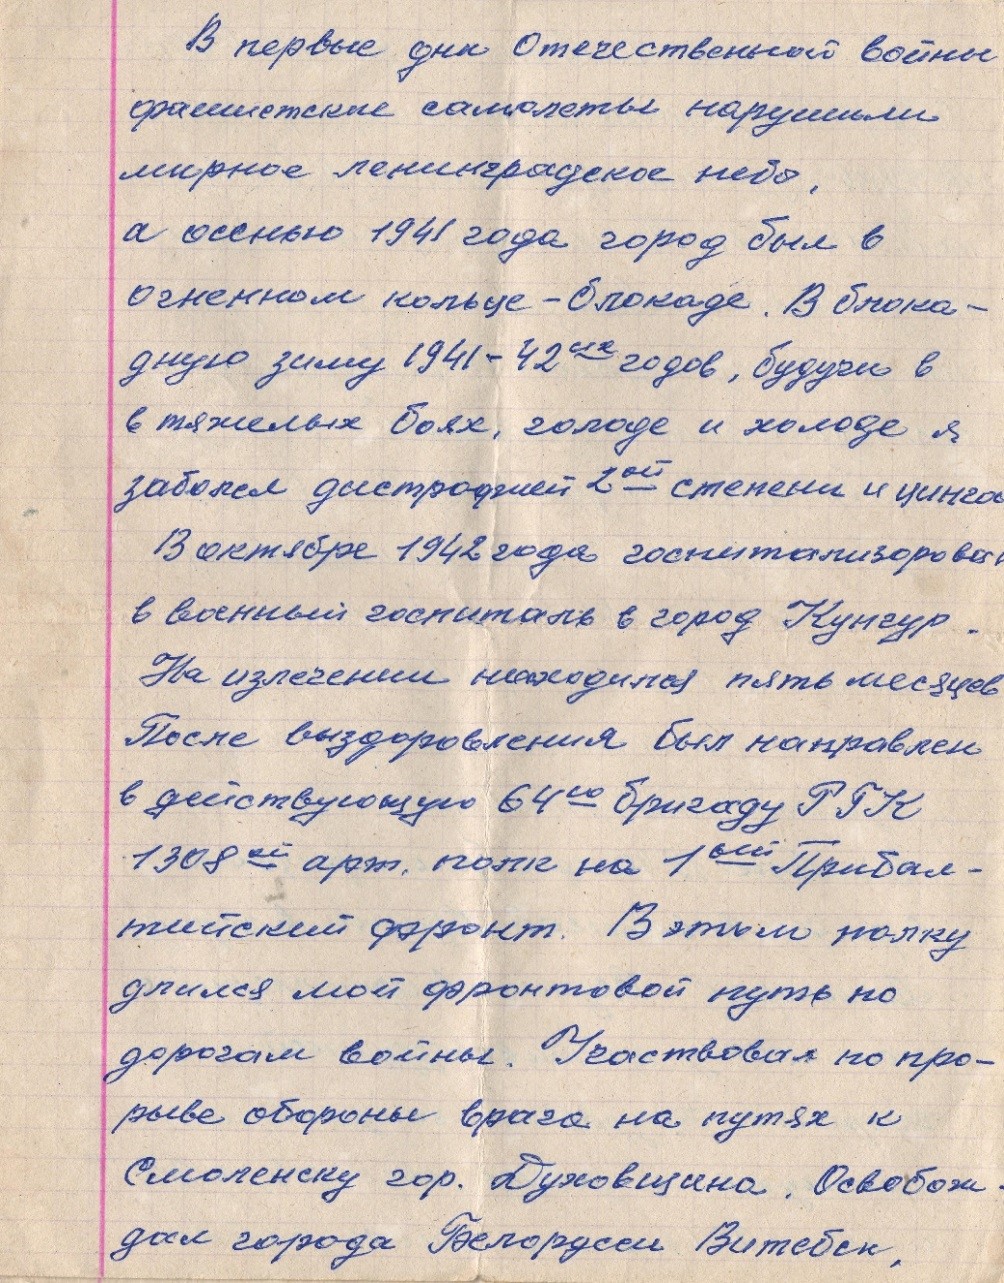 В первые дни Отечественной войны
фашистские самолеты нарушили
мирное ленинградское небо,
а осенью 1941 года город был в
огненном кольце - блокаде. В блока-
дную зиму 1941-42ых годов, будучи в
в тяжелых боях, голоде и холоде я
заболел дистрофией 2ой степени и цинга
В октябре 1942 года госпитализорован
в военный госпиталь в город Кунгур.
На излечении находился пять месяцев
После выздоровления был направлен
в действующую 64ю бригаду РГК
1308ой арт. полк на 1ый Прибал-
тийский фронт. В этом полку
длился мой фронтовой путь по
дорогам войны. Участвовал по про-
рыве обороны врага на путях к
Смоленску гор. Духовщина. Освобож-
дал города Белоруссии Витебск,